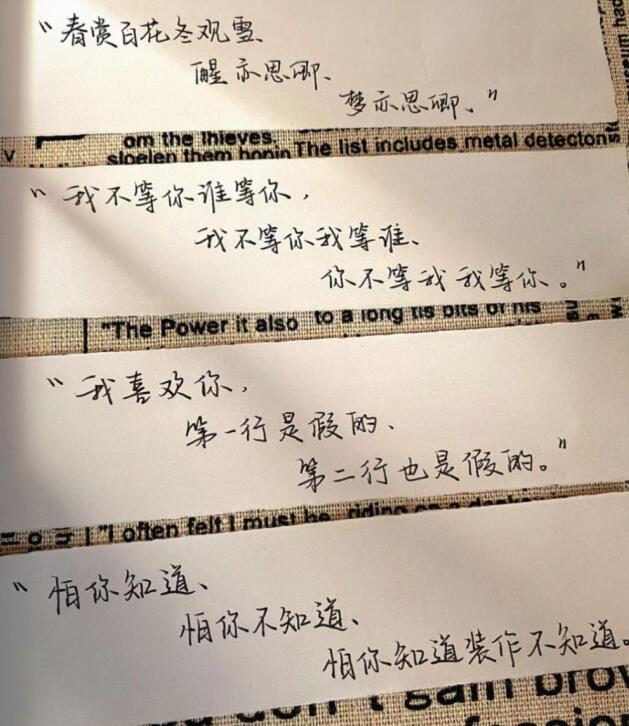 “春赏百花冬观雪、
醒亦思卿、
梦亦思卿、”
om the Ihieves.
sloelen them hopin The list includes metal detectons
“我不等你谁等你，
我不等你我等谁、
你不等我我等你。”
"The Power it also to a long tis bits of his
“我喜欢你，
第一行是假的、
第二行也是假的。”
"I often felt I must be riding on a
“怕你知道、
怕你不知道、
怕你知道装作不知道。
don't gain brow